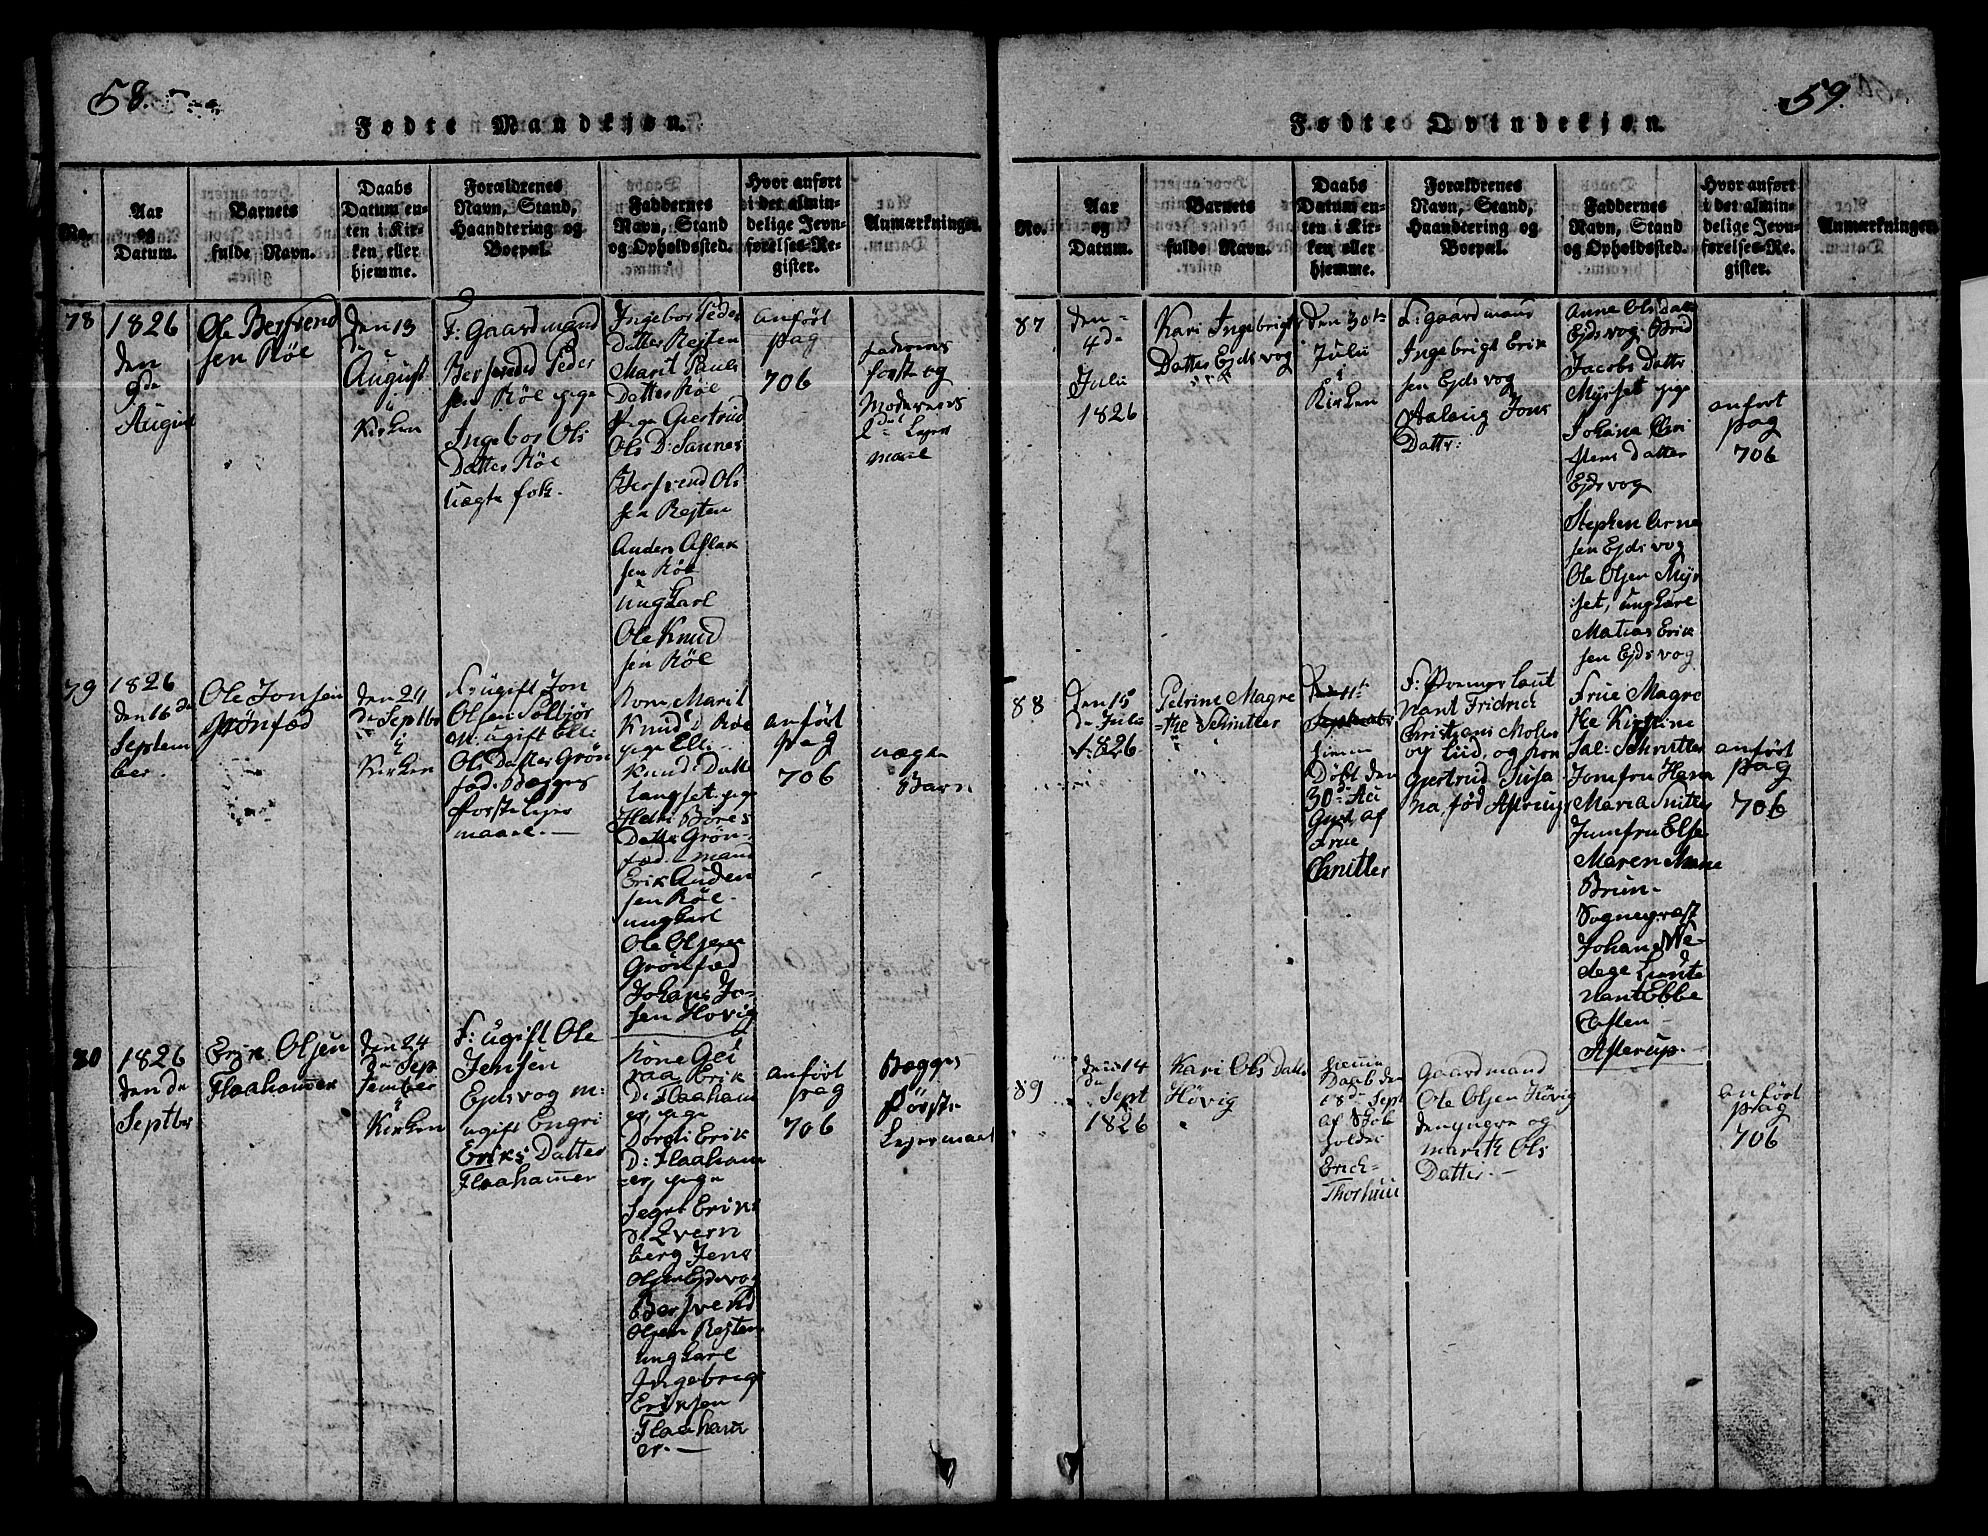 58.
Fødte Mandkjøn.
No.
Aar
og
Datum.
Barnets
fulde Navn.
Daabs
Datum en-
ten i Kir-
ken eller
hjemme.
Forældrenes
Navn, Stand,
Haandtering og
Boepæl.
Faddernes
Navn, Stand
og Opholdssted.
Hvor anført
i det almin-
delige Jevn-
førelses-Re-
gister.
Anmærkninger.
78
1826
den
9de
August
Ole Bersvend
sen Röe
den 13
de
August
i
Kirken
F: Gaardmand
Bersvend Peder
sen Röe pige
Ingebor Ols
Datter Röe
uægte folk.
Ingebor Peder
Datter Rejten
Marit Pauls
Datter Röe
pige Giertrud
Ols D: Sannes
Bersvend Ols
sen Rejten
Anders Aslak
sen Röe
ungkarl
Ole Knud
sen Röe
anført
pag
706
faderens
første og
Moderens
2det Lejer
maal
79
1826
den 16de
Septem
ber.
Ole Jonsen
Grönfæd
den 24
de Septbr
i
Kirken
F: ugift Jon
Olsen Solbjör
M: ugift Elli
Ols Datter Grön
fæd. Begges
første Lejer
maal.
Kone Marit
Knuds D Röe
pige Elli
Knuds Datte
Langset pige
Datter Grön-
fæd. mand
Erik Anden
sen Röe.
ungkarl
Ole Olsen
Grönfæd
Johans Jo-
sen Hovig
anført
pag
706
uægte
Barn
80
1826
den de
Septbr
Erik Olsen
Flaahammer
den 24
de Sep
tember
i
Kirken
F: ugift Ole
Jensen
Ejdsvog m:
ugift Engri
Eriks Datter
Flaahammer
Kone Gei
raa Erik
D: Flaaham
er, pige
Dordi Erik
D: Flaaham
er, pige
Segri Eriks
d:
berg Jens
Olsen Ejdsvog
Bersvend
Olsen Rejten
ungkarl
Ingebrigt
Eriksen
Flaaham
er.
anført
pag
706
Begges
Første
Lejermaal
59.
Fødte Qvindekjøn.
No.
Aar
og
Datum.
Barnets
fulde Navn.
Daabs
Datum en-
ten i Kir-
ken eller
hjemme.
Forældrenes
Navn, Stand,
Haandtering og
Boepæl.
Faddernes
Navn, Stand
og Opholdssted.
Hvor anført
i det almin-
delige Jevn-
førelses-Re-
gister.
Anmærkninger.
87
den
4de
Juli
1826
Kari Ingebrigts
Datter Ejdsvog
den 30te
Juli
i
Kirken
F: gaardmand
Ingebrigt Erik
sen Ejdsvog
Aalaug Jons
Datter:
Anne Ols datt
Ejdsvog
Jacobs Datter
Myrset pige
Johana
stens Datter
Ejdsvog
Stephen Arne
sen Ejdsvog
Ole Olsen Myr
set, ungkarl
Matias Erik
sen Ejdsvog
anført
pag
706
88
den 15
de Juli
1826
Petrine Magre
the Schnitler
hjemme
Döbt den
30de Au
gust af
Frue
Schnitler
F: Premier Laut
nant Fridrich
Christians
og
Gjertrud Susa
na, fød Astrup
Frue Magre
the Kirstine
Sal: Schnitler
Jomfru Hana
Maria Snitler
Jumfru Else
Maren
Brun
Sognepræst
Johan
Lunte
nant Ebbe
Casten
Asterup.
anført
pag
706
89
den 14
de
Sept
1826
Kari Ols Datter
Hövig
hjemme
Daab den
18de Sept
af Skole
holder
Erich
Gaardmand
Ole Olsen Hövig
den yngre og
Marit Ols
Datter.
anført
pag
706